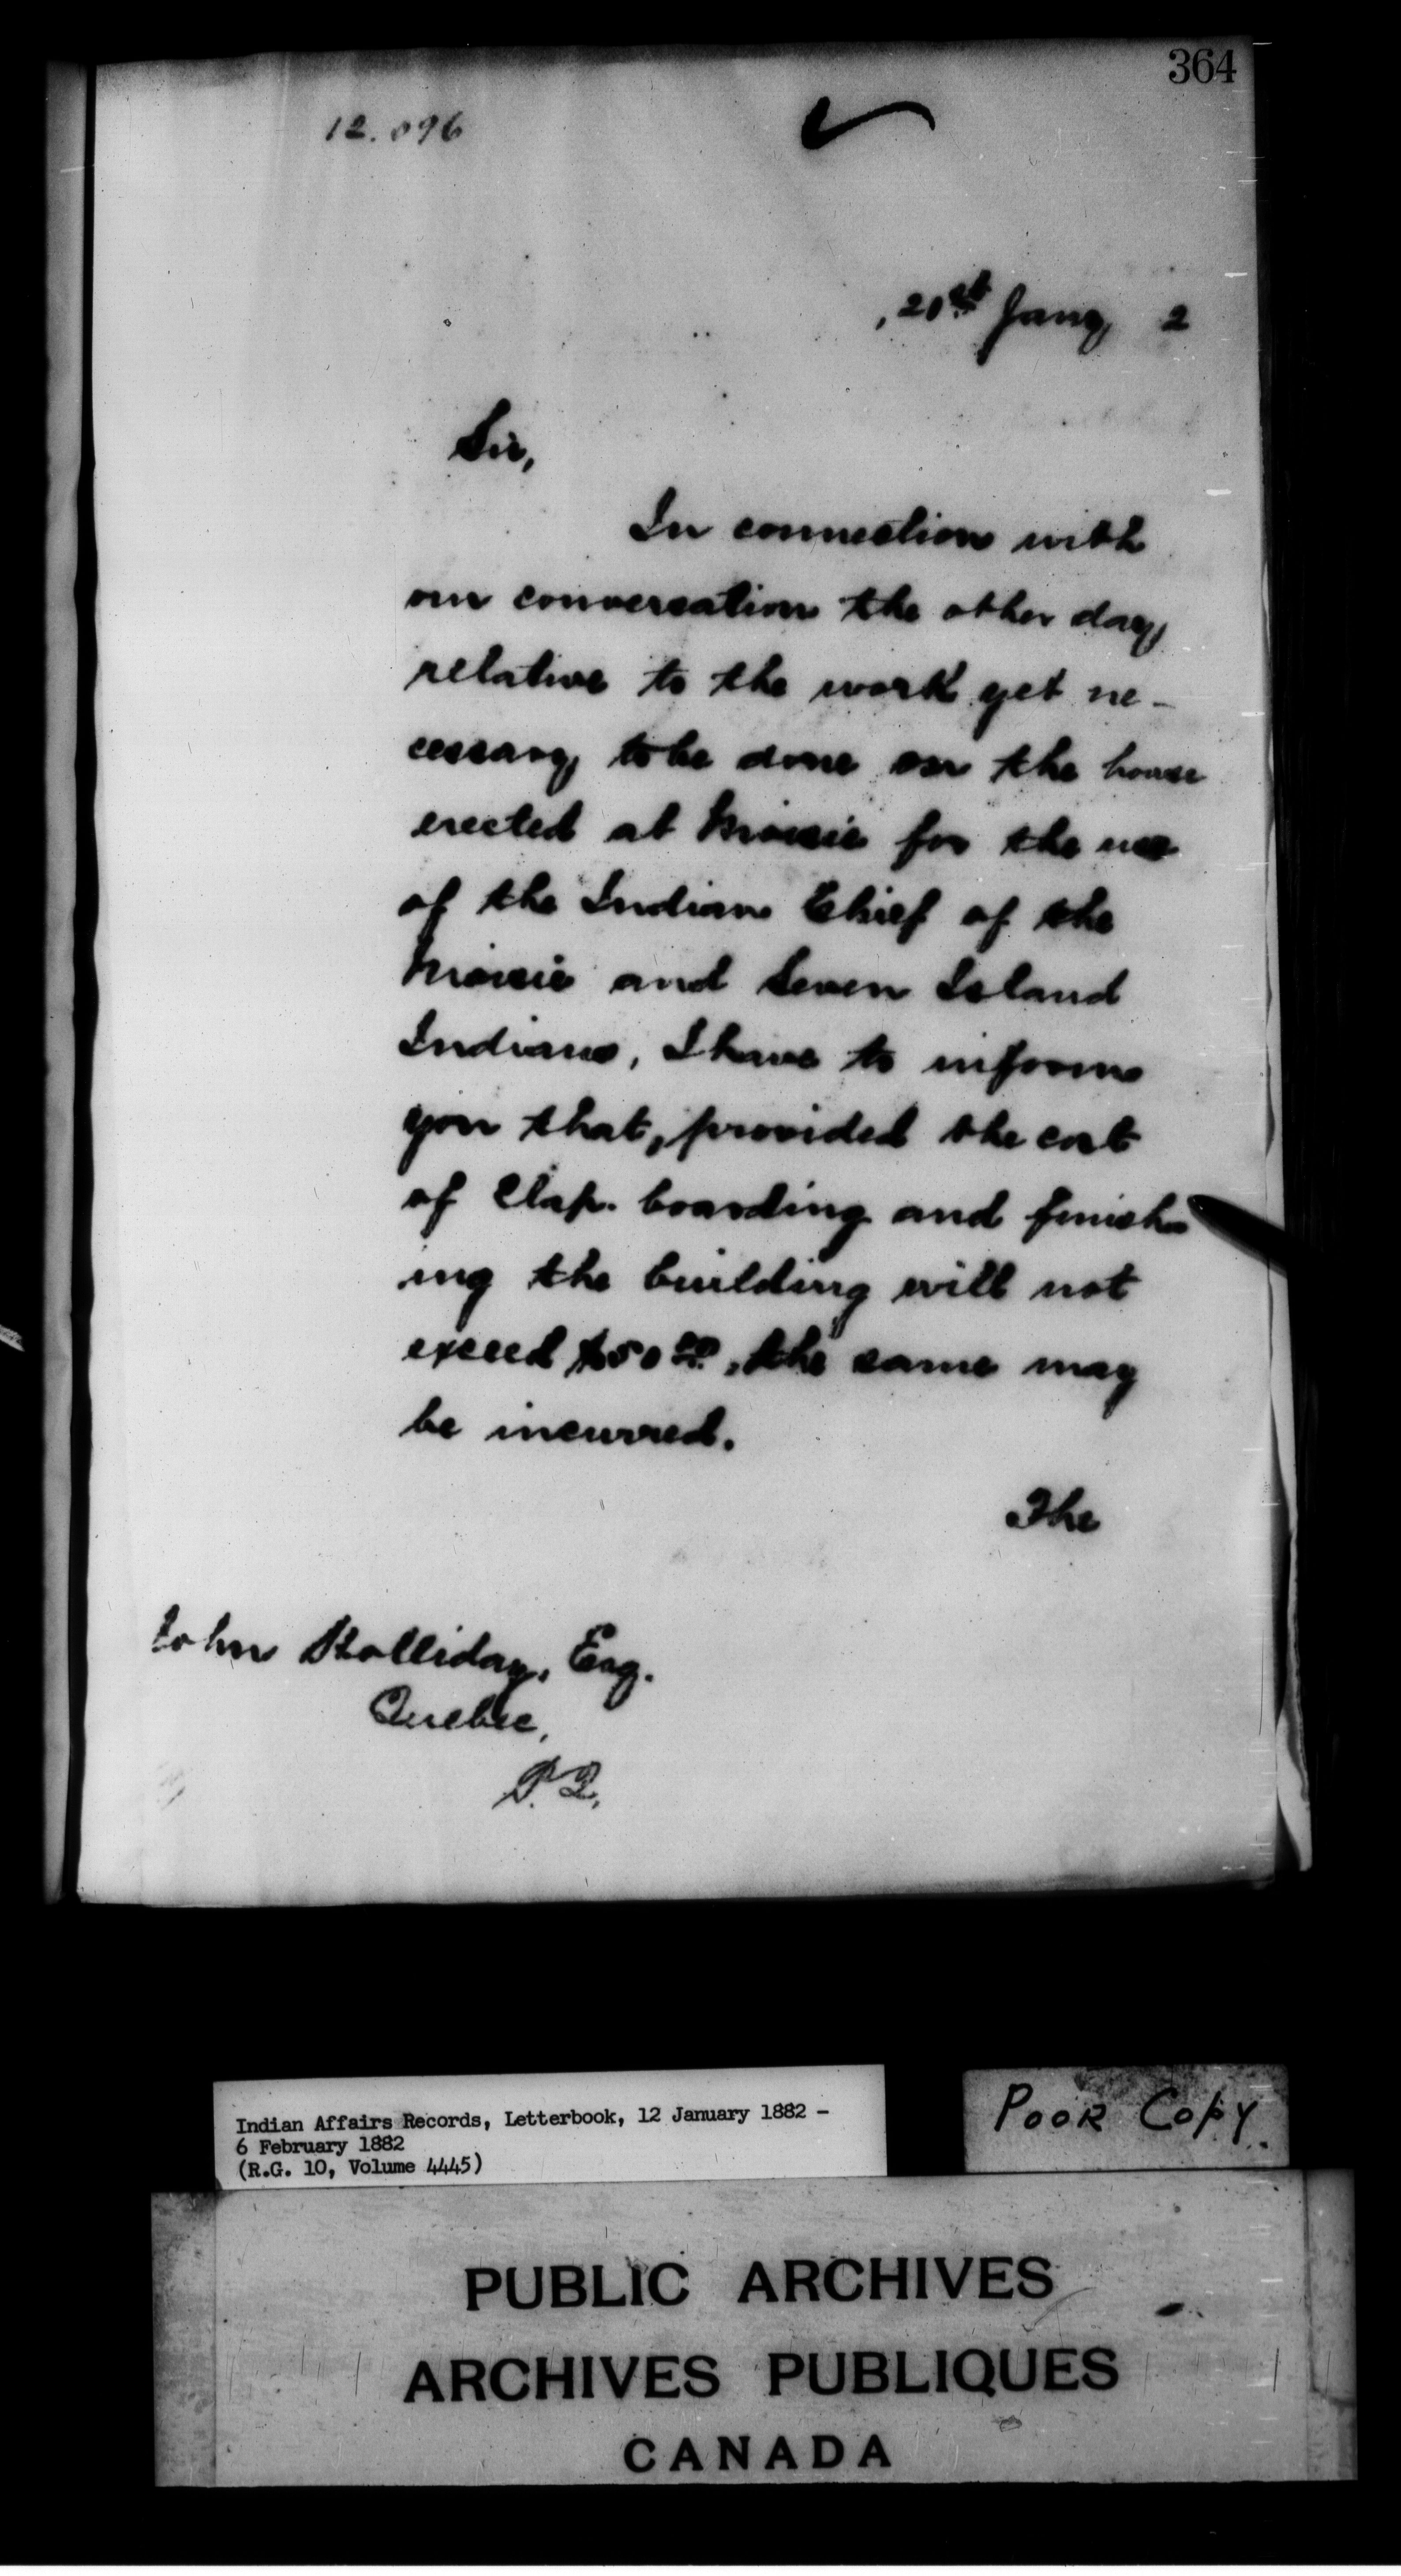 364
12.096
20th Jany 2
Sir,
In connection with
our conversation the other day,
relative to the work yet ne-
cessary to be done on the house
erected at Moisie for the use
of the Indian Chief of the
Moisie and Seven Island
Indians, I have to inform
you that, provided the cost
of Clap. boarding and finish-
ing the building will not
exceed $50.00, the same may
be incurred.
The
John Holliday, Esq.
Quebec,
P.Q.
Indian Affairs Records, Letterbook, 12 January 1882 -
6 February 1882
(R.G. 10, Volume 4445)
POOR COPY.
PUBLIC ARCHIVES
ARCHIVES PUBLIQUES
CANADA